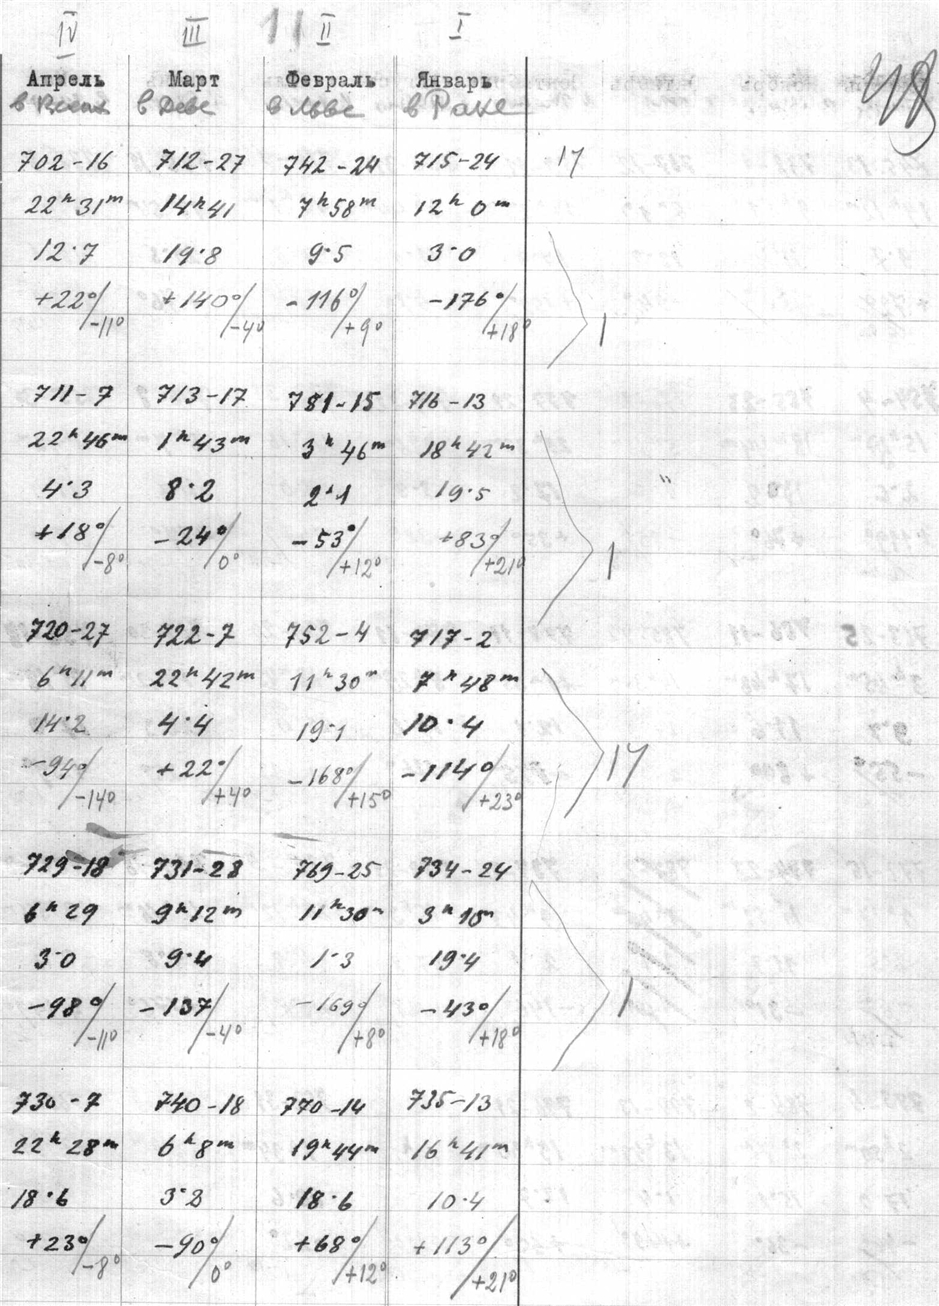 IV III 11 II I
Апрель Март Февраль Январь 48
в Весах в Деве в Льве в Раке
702-16 712-27 742-24 715-24 17
22ʰ31ᵐ 14ʰ41 7ʰ58ᵐ 12ʰ0ᵐ
12·7 19·8 9·5 3·0
+22°/-11° +140°/-4° -116°/+9° -176°/+18° 1
711-7 713-17 781-15 716-13
22ʰ46ᵐ 1ʰ43ᵐ 3ʰ46ᵐ 18ʰ42ᵐ
4·3 8·2 2·1 19·5 "
+18°/-8° -24°/0° -53°/+12° +83°/+21° 1
720-27 722-7 752-4 717-2
6ʰ11ᵐ 22ʰ42ᵐ 11ʰ30ᵐ 7ʰ48ᵐ
14·2 4·4 19·1 10·4
-94°/-14° +22°/+4° -168°/+15° -114°/+23° 17
729-18 731-28 769-25 734-24
6ʰ29 9ʰ12ᵐ 11ʰ30ᵐ 3ʰ10ᵐ
3·0 9·4 1·3 19·4
-98°/-11° -137/-4° -169°/+8° -43°/+18° 1
730-7 740-18 770-14 735-13
22ʰ28ᵐ 6ʰ8ᵐ 19ʰ44ᵐ 16ʰ41ᵐ
18·6 3·2 18·6 10·4
+23°/-8° -90°/0° +68°/+12° +113°/+21°